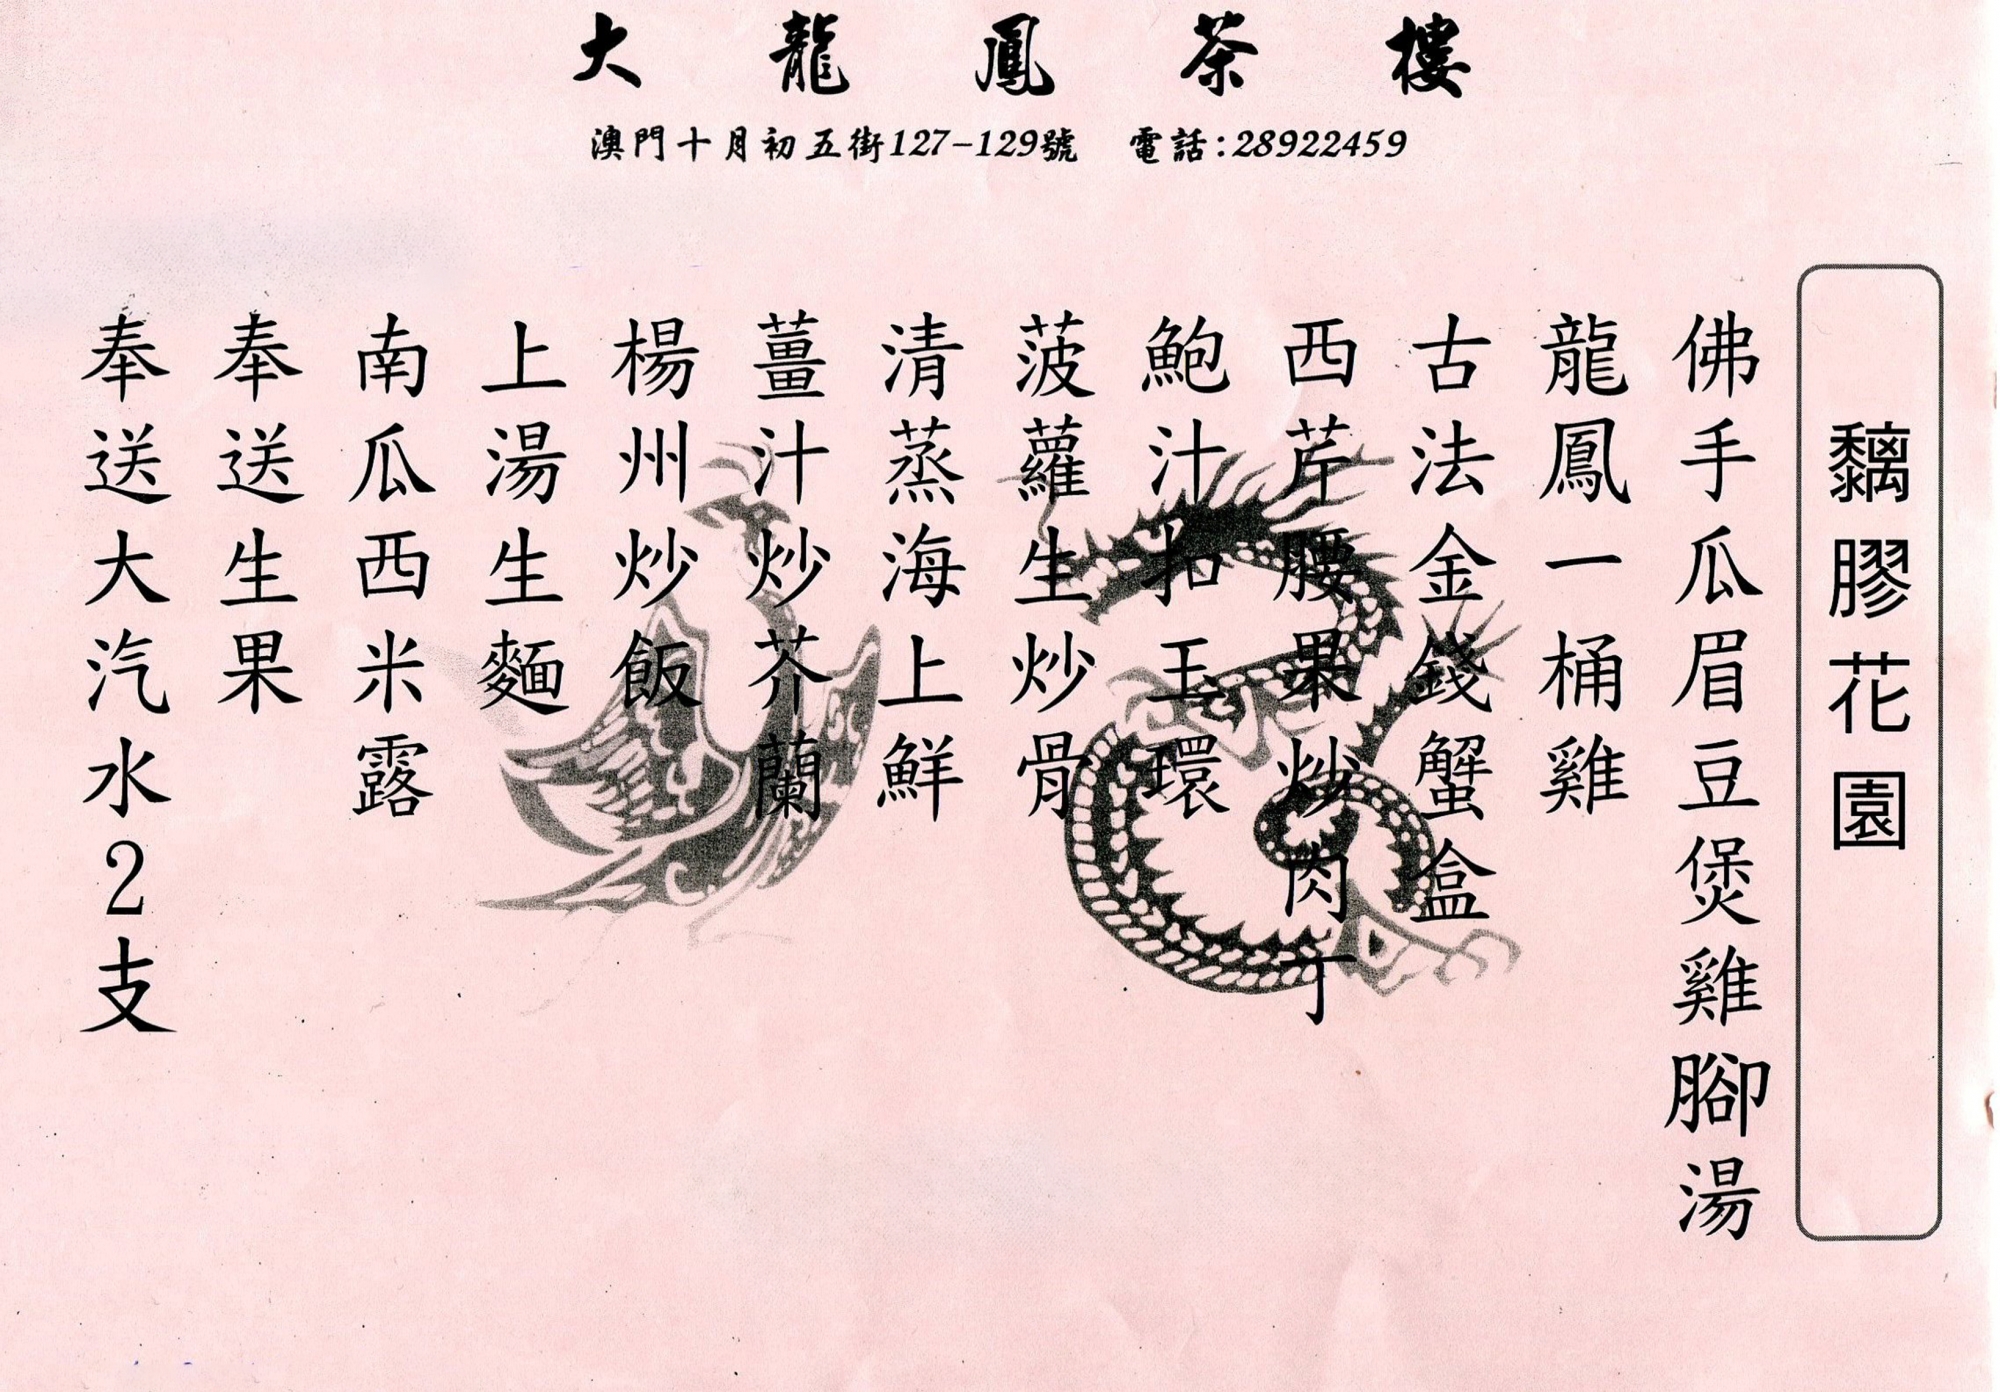 大龍鳳茶樓
澳門十月初五街127-129號 電話:28922459
黐膠花園
佛手瓜眉豆煲雞腳湯
龍鳳一桶雞
古法金錢蟹盒
西芹腰果炒肉丁
鮑汁扣玉環
菠蘿生炒骨
清蒸海上鮮
薑汁炒芥蘭
楊州炒飯
上湯生麵
南瓜西米露
奉送生果
奉送大汽水2支